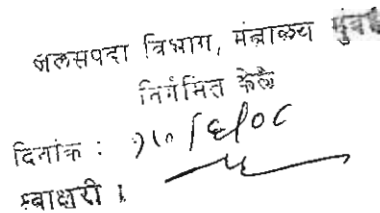 जलसपदा विभाग, मंत्रालय मुंबई
निर्गमित केले
दिनांक : १७/६/०८
स्वाक्षरी :